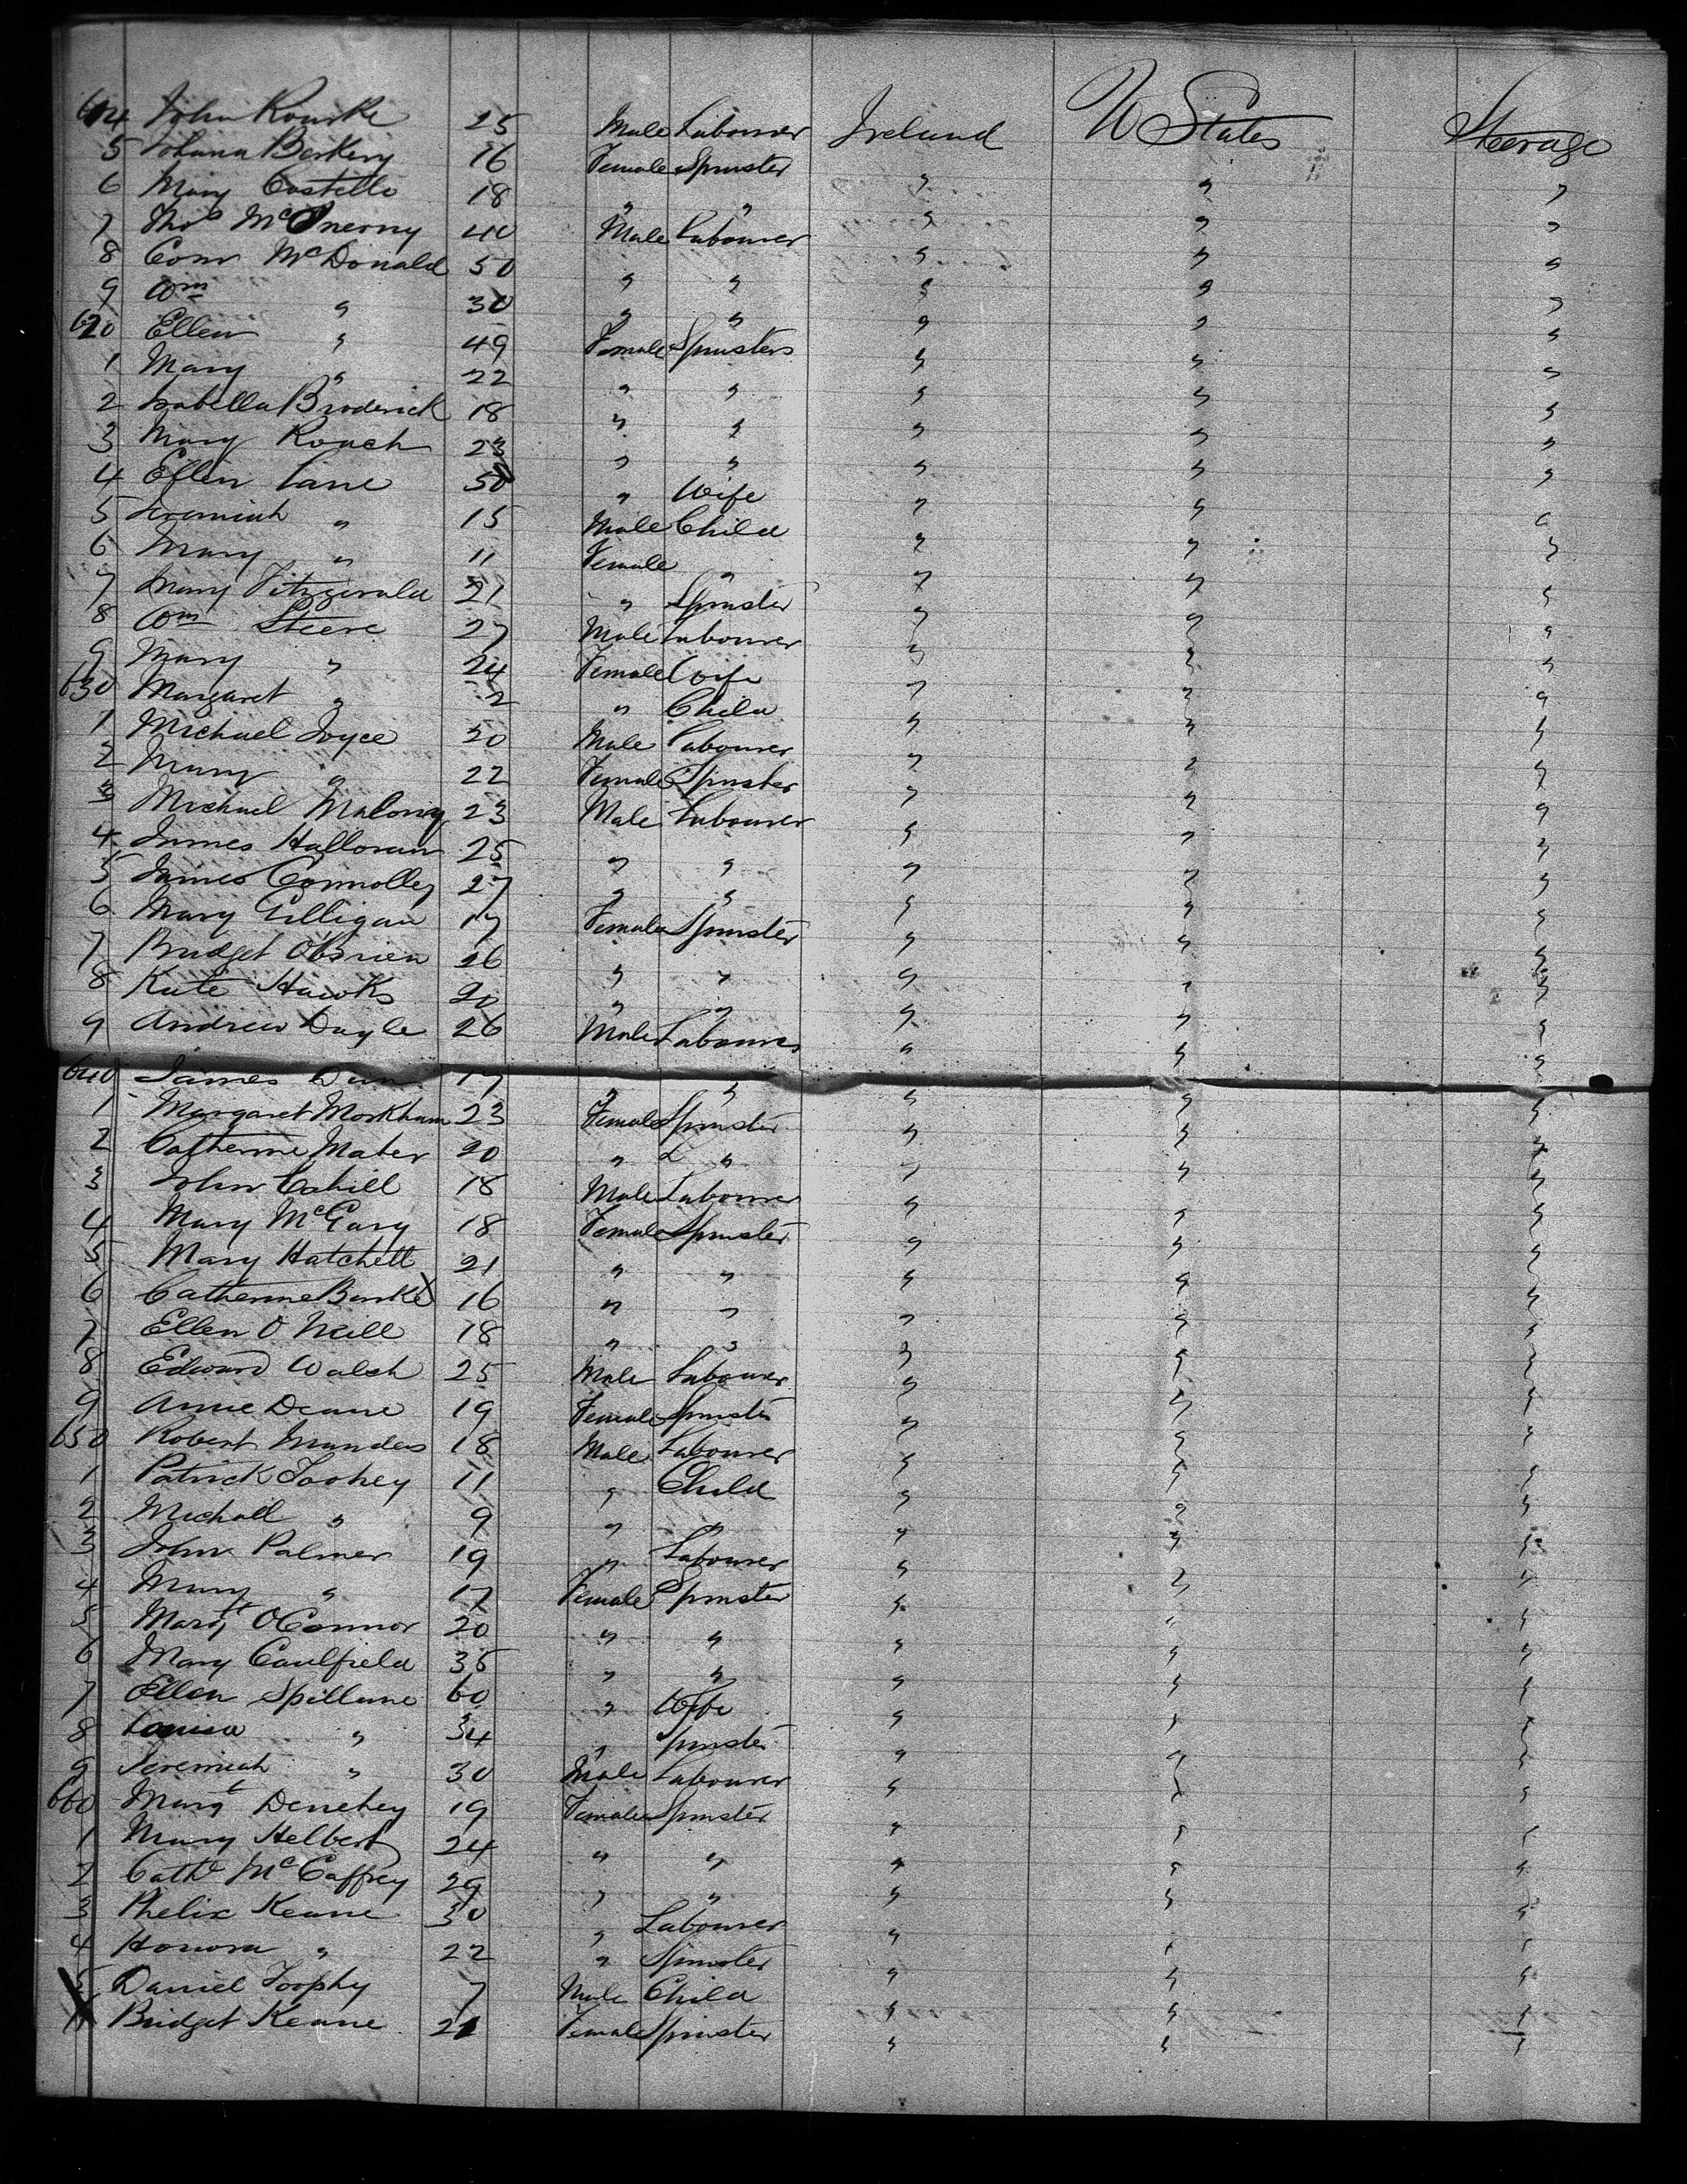 614 John Rourke 25 Male Labourer Ireland U States Steerage
5 Johana Berkery 16 Female Spinster " " "
6 Mary Costello 18 " " " " "
7 Thos McInerny 40 Male Labourer " " "
8 Conr McDonald 50 " " " " "
9 Wm " 30 " " " " "
620 Ellen " 49 Female Spinsters " " "
1 Mary " 22 " " " " "
2 Isabella Broderick 18 " " " " "
3 Mary Roach 23 " " " " "
4 Ellen Lane 50 " Wife " " "
5 Jeremiah " 15 Male Child " " "
6 Mary " 11 Female " " " "
7 Mary Fitzgerald 21 " Spinster " " "
8 Wm Steere 27 Male Labourer " " "
9 Mary " 24 Female Wife " " "
630 Margaret " 2 " Child " " "
1 Michael Joyce 20 Male Labourer " " "
2 Mary " 22 Female Spinster " " "
3 Michael Maloney 23 Male Labourer " " "
4 James Halloran 25 " " " " "
5 James Connolley 27 " " " " "
6 Mary Gilligan 17 Female Spinster " " "
7 Bridget O'Brien 26 " " " " "
8 Kate Hawks 20 " " " " "
9 Andrew Doyle 26 Male Labourer " " "
640 James Dun 17 " " " " "
1 Margaret Morkham 23 Female Spinster " " "
2 Catherine Maher 20 " " " " "
3 John Cahill 18 Male Labourer " " "
4 Mary McGary 18 Female Spinster " " "
5 Mary Hatchett 21 " " " " "
6 Catherine Burke 16 " " " " "
7 Ellen O Neill 18 " " " " "
8 Edward Walsh 25 Male Labourer " " "
9 Anne Deane 19 Female Spinster " " "
650 Robert Manders 18 Male Labourer " " "
1 Patrick Toohey 11 " Child " " "
2 Michall " 9 " " " " "
3 John Palmer 19 " Labourer " " "
4 Mary " 17 Female Spinster " " "
5 Margt O'Connor 20 " " " " "
6 Mary Caulfield 35 " " " " "
7 Ellen Spillane 60 " Wife " " "
8 Louisa " 34 " Spinster " " "
9 Jeremiah " 30 Male Labourer " " "
660 Margt Dennehey 19 Female Spinster " " "
1 Mary Helbert 24 " " " " "
2 Cathe McCaffrey 29 " " " " "
3 Phelix Keane 30 " Labourer " " "
4 Honora " 22 " Spinster " " "
5 Daniel Toophy 7 Male Child " " "
Bridget Keane 21 Female Spinster " " "